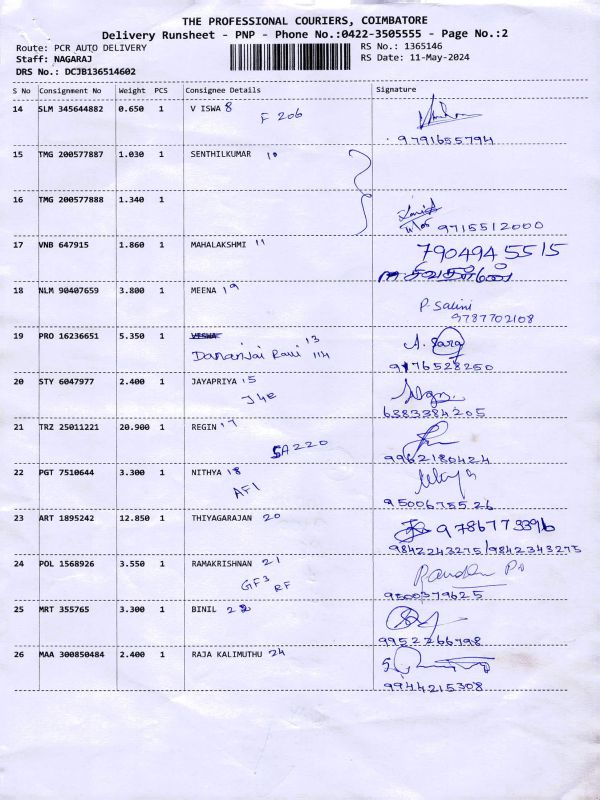 THE PROFESSIONAL COURIERS, COIMBATORE
Delivery Runsheet - PNP - Phone No.:0422-3505555 - Page No.:2
Route: PCR AUTO DELIVERY
RS No.: 1365146
Staff: NAGARAJ
RS Date: 11-May-2024
DRS No.: DCJB136514602
S No Consignment No Weight PCS Consignee Details Signature
14 SLM 345644882 0.650 1 V ISWA 8
F 206
9791655794
15 TMG 200577887 1.030 1 SENTHILKUMAR 10
16 TMG 200577888 1.340 1
9715512000
17 VNB 647915 1.860 1 MAHALAKSHMI 11
7904945515
18 NLM 90407659 3.800 1 MEENA 19
P. Salini
9787702108
19 PRO 16236651 5.350 1 VISWA 13
Dananjai Ravi 114
9176528250
20 STY 6047977 2.400 1 JAYAPRIYA 15
J4E
6383384205
21 TRZ 25011221 20.900 1 REGIN 17
SA220
9962180424
22 PGT 7510644 3.300 1 NITHYA 18
AF1
9500675526
23 ART 1895242 12.850 1 THIYAGARAJAN 20
9786773396
9842243275/9842343275
24 POL 1568926 3.550 1 RAMAKRISHNAN 21
GF3 RF
9500379625
25 MRT 355765 3.300 1 BINIL 22
9952266798
26 MAA 300850484 2.400 1 RAJA KALIMUTHU 24
9944215308